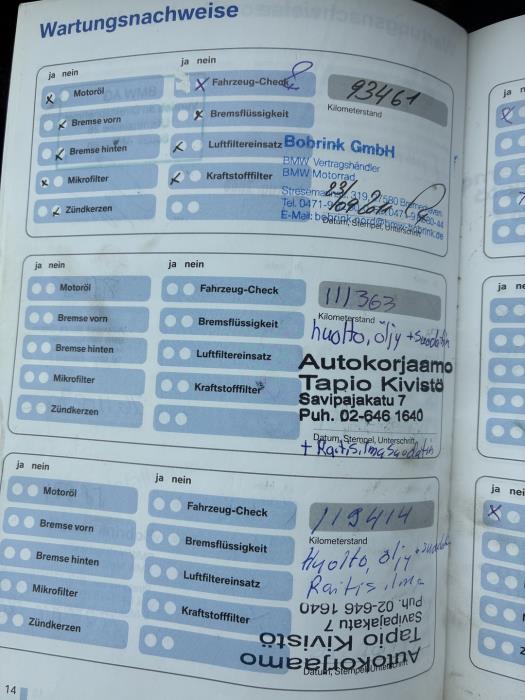 Wartungsnachweise
ja nein
ja nein
Motoröl
Bremse vorn
Bremse hinten
Mikrofilter
Zündkerzen
Fahrzeug-Check
Bremsflüssigkeit
Luftfiltereinsatz
Kraftstofffilter
93461
Kilometerstand
Bobrink GmbH
BMW Vertragshändler
BMW Motorrad
Datum, Stempel, Unterschrift
ja nein
ja nein
Motoröl
Bremse vorn
Bremse hinten
Mikrofilter
Zündkerzen
Fahrzeug-Check
Bremsflüssigkeit
Luftfiltereinsatz
Kraftstofffilter
111363
Kilometerstand
huolto, öljy + suodatin
Autokorjaamo
Tapio Kivistö
Savipajakatu 7
Puh. 02-646 1640
Datum, Stempel, Unterschrift
+ Raitisilmasuodatin
ja nein
ja nein
Motoröl
Bremse vorn
Bremse hinten
Mikrofilter
Zündkerzen
Fahrzeug-Check
Bremsflüssigkeit
Luftfiltereinsatz
Kraftstofffilter
119414
Kilometerstand
Huolto, öljy + suodatin
Raitisilma
Autokorjaamo
Tapio Kivistö
Savipajakatu 7
Puh. 02-646 1640
Datum, Stempel, Unterschrift
14